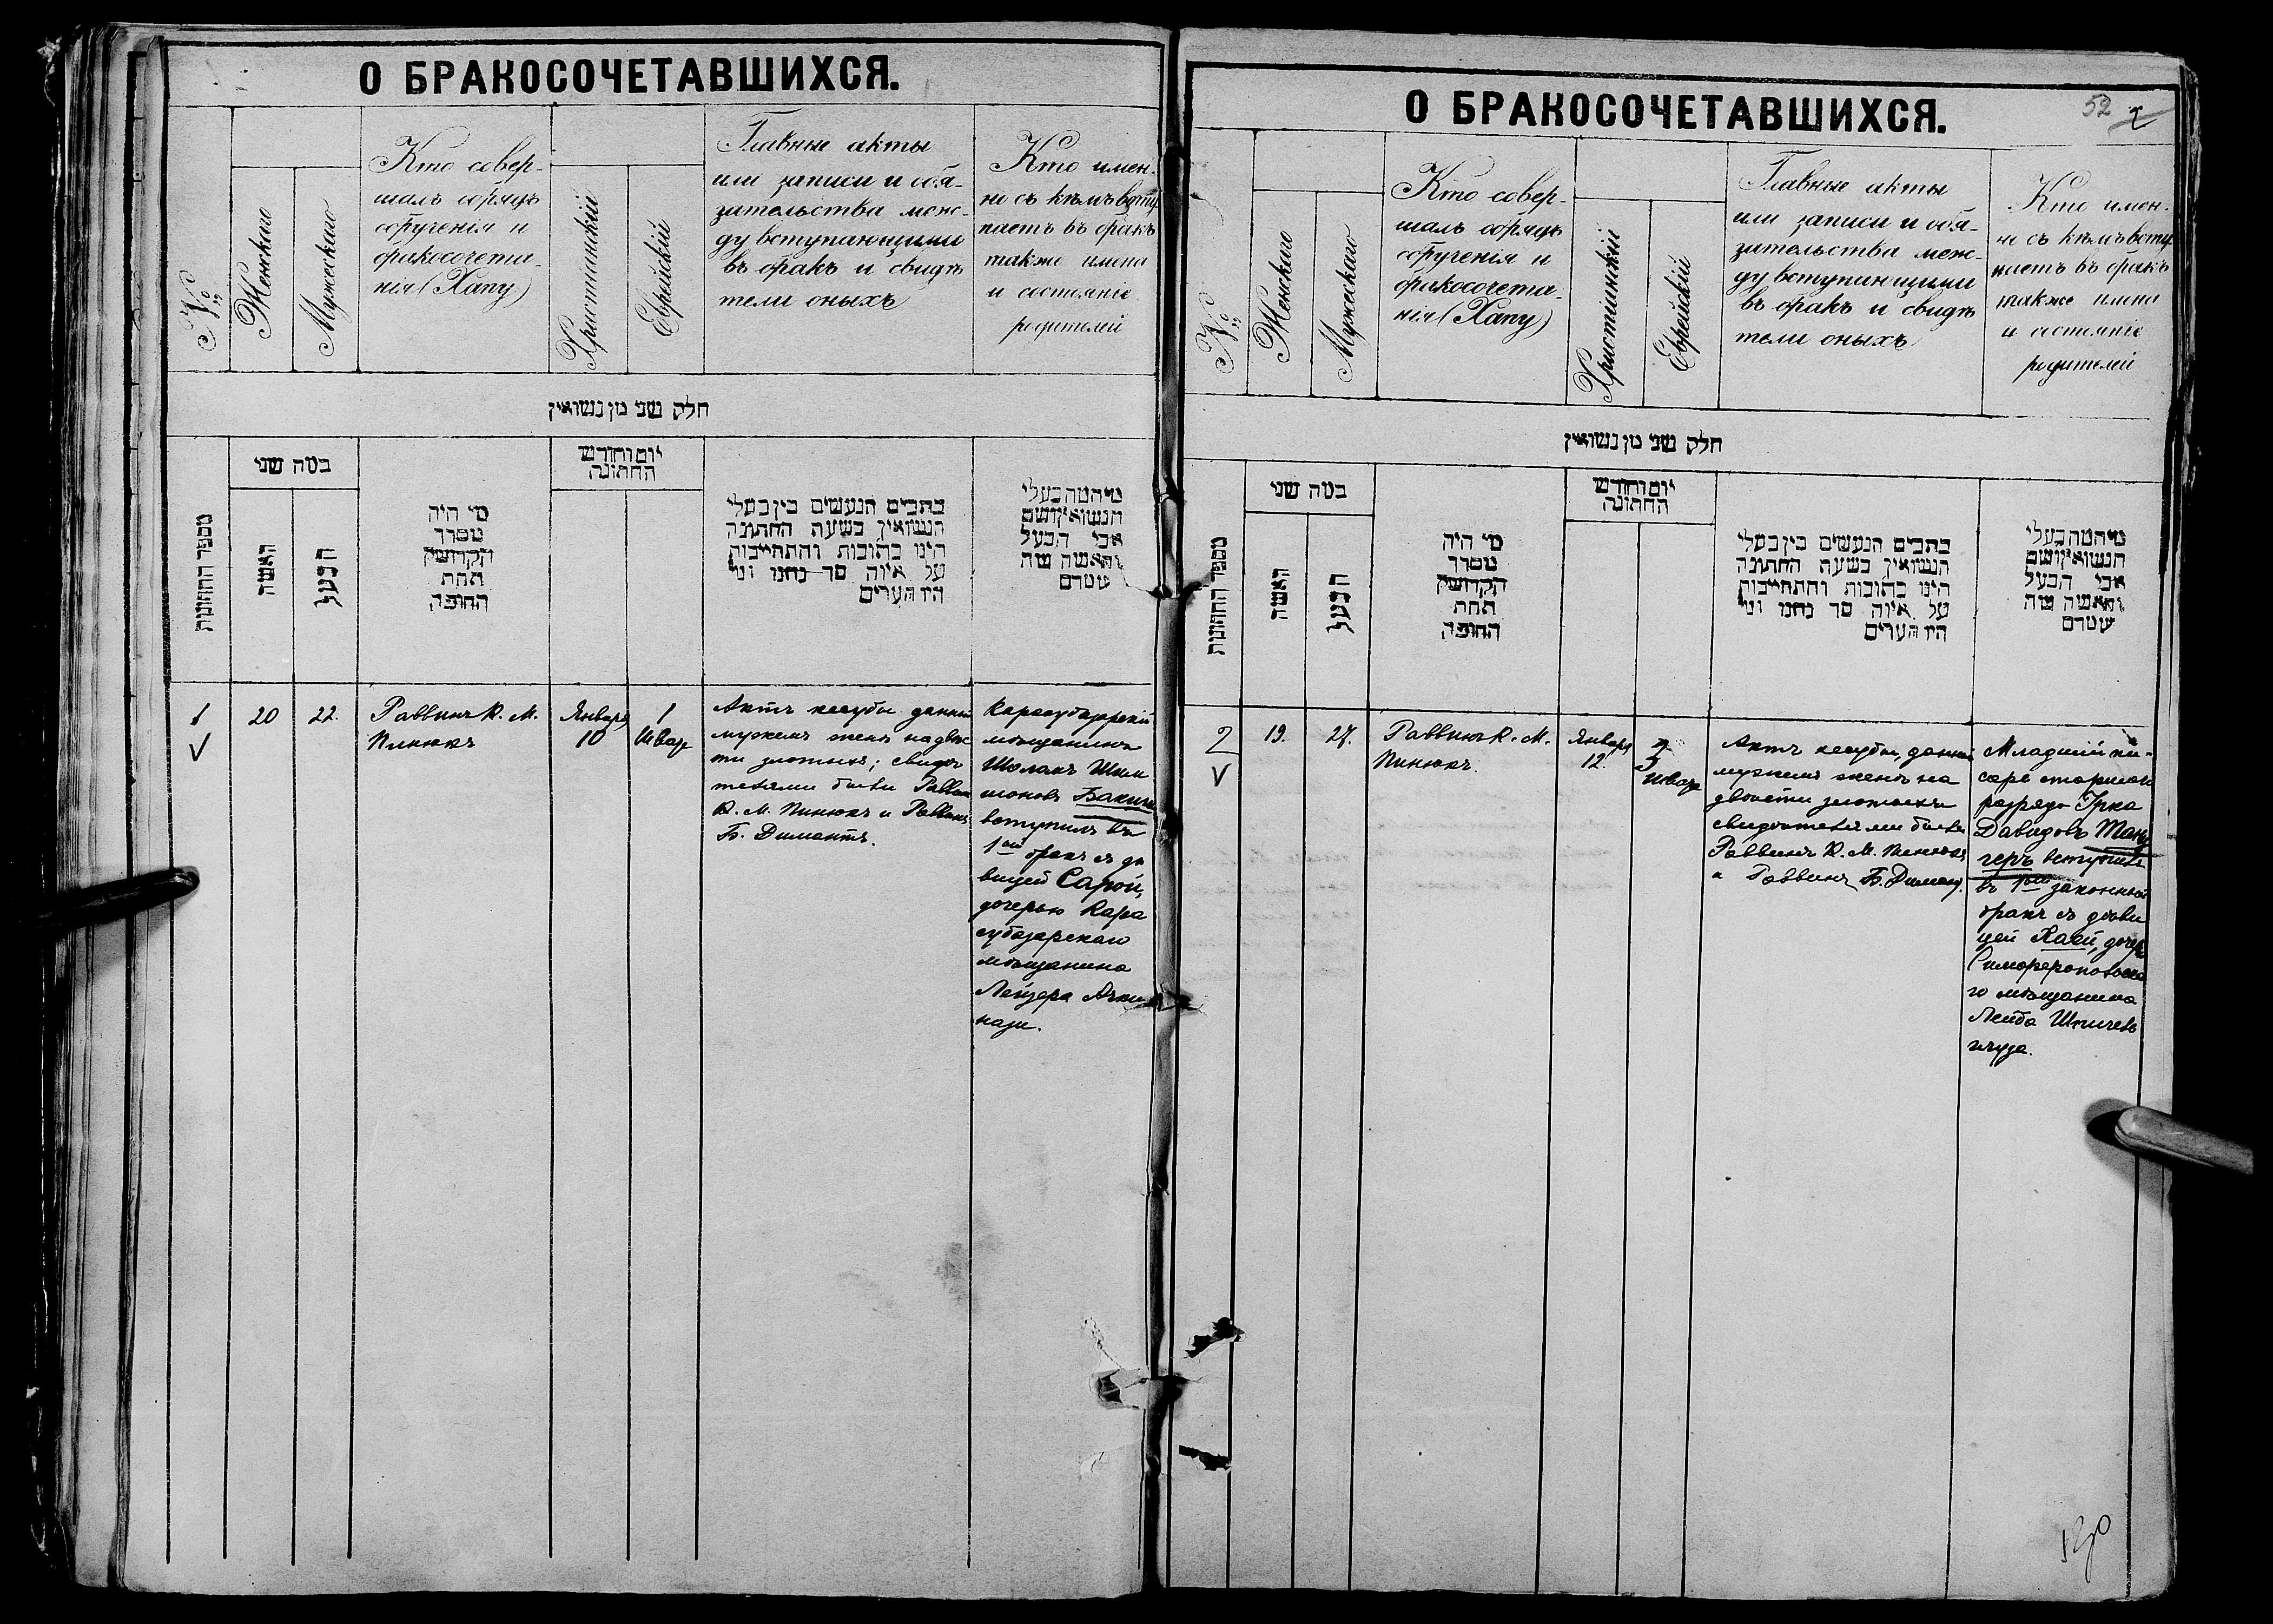 О БРАКОСОЧЕТАВШИХСЯ.
№
Женскаго
Мужескаго
Кто совер-
шалъ обрядъ
обрученія и
бракосочета-
нія (Хапу)
Христіанскій
Еврейскій
Главные акты
или записи и обя-
зательства меж-
ду вступающими
въ бракъ и свидѣ
тели оныхъ
Кто имен-
но съ кѣмъ всту
паетъ въ бракъ
также имена
и состояніе
родителей
חלק שני מן נשואין
מספר החתונות
כמה שני
האשה
הבעל
מי היה
מסדר
הקדושין
תחת
החופה
יום וחודש
החתונה
בתבים הנעשים בין בעלי
הנשואין בשעת החתונה
היינו כתובות והתחייבות
על איזה סך נתנו ומי
היו הערים
מי המה בעלי
הנשואין ושם
אבי הבעל
והאשה מה
שמדם
1
20
22.
Раввинъ К. М.
Пинюкъ
Января
10
1
Шват
Актъ кесубы данный
мужемъ женѣ на двѣс
ти злотыхъ; свидѣ
телями были Раввин
К. М. Пинюкъ и Раввинъ
Б. Димантъ.
Карасубазарскій
мѣщанинъ
Шоломъ Шим
шоновъ
вступилъ въ
1ый бракъ съ дѣ
вицей Сарой,
дочерью Кара
субазарскаго
мѣщанина
Лейзера Ашке
нази.
О БРАКОСОЧЕТАВШИХСЯ.
52
2
№
Женскаго
Мужескаго
Кто совер-
шалъ обрядъ
обрученія и
бракосочета-
нія (Хапу)
Христіанскій
Еврейскій
Главные акты
или записи и обя-
зательства меж-
ду вступающими
въ бракъ и свидѣ
тели оныхъ
Кто имен-
но съ кѣмъ всту
паетъ въ бракъ
также имена
и состояніе
родителей
חלק שני מן נשואין
מספר החתונות
כמה שני
האשה
הבעל
מי היה
מסדר
הקדושין
תחת
החופה
יום וחודש
החתונה
בתבים הנעשים בין בעלי
הנשואין בשעת החתונה
היינו כתובות והתחייבות
על איזה סך נתנו ומי
היו הערים
מי המה בעלי
הנשואין ושם
אבי הבעל
והאשה מה
שמדם
2
19.
27.
Раввинъ К. М.
Пинюкъ.
Января
12.
3
Шват
Актъ кесубы, данный
мужемъ женѣ на
двѣсти злотыхъ
свидѣтелями были
Раввинъ К. М. Пинюкъ
и Раввинъ Б. Димант.
Младшій пи-
сарь старшаго
разряда
Давидовъ
вступилъ
въ 1ый законный
бракъ съ дѣви
цей Хаей, дочерью
Симферопольска
го мѣщанина
Лейба